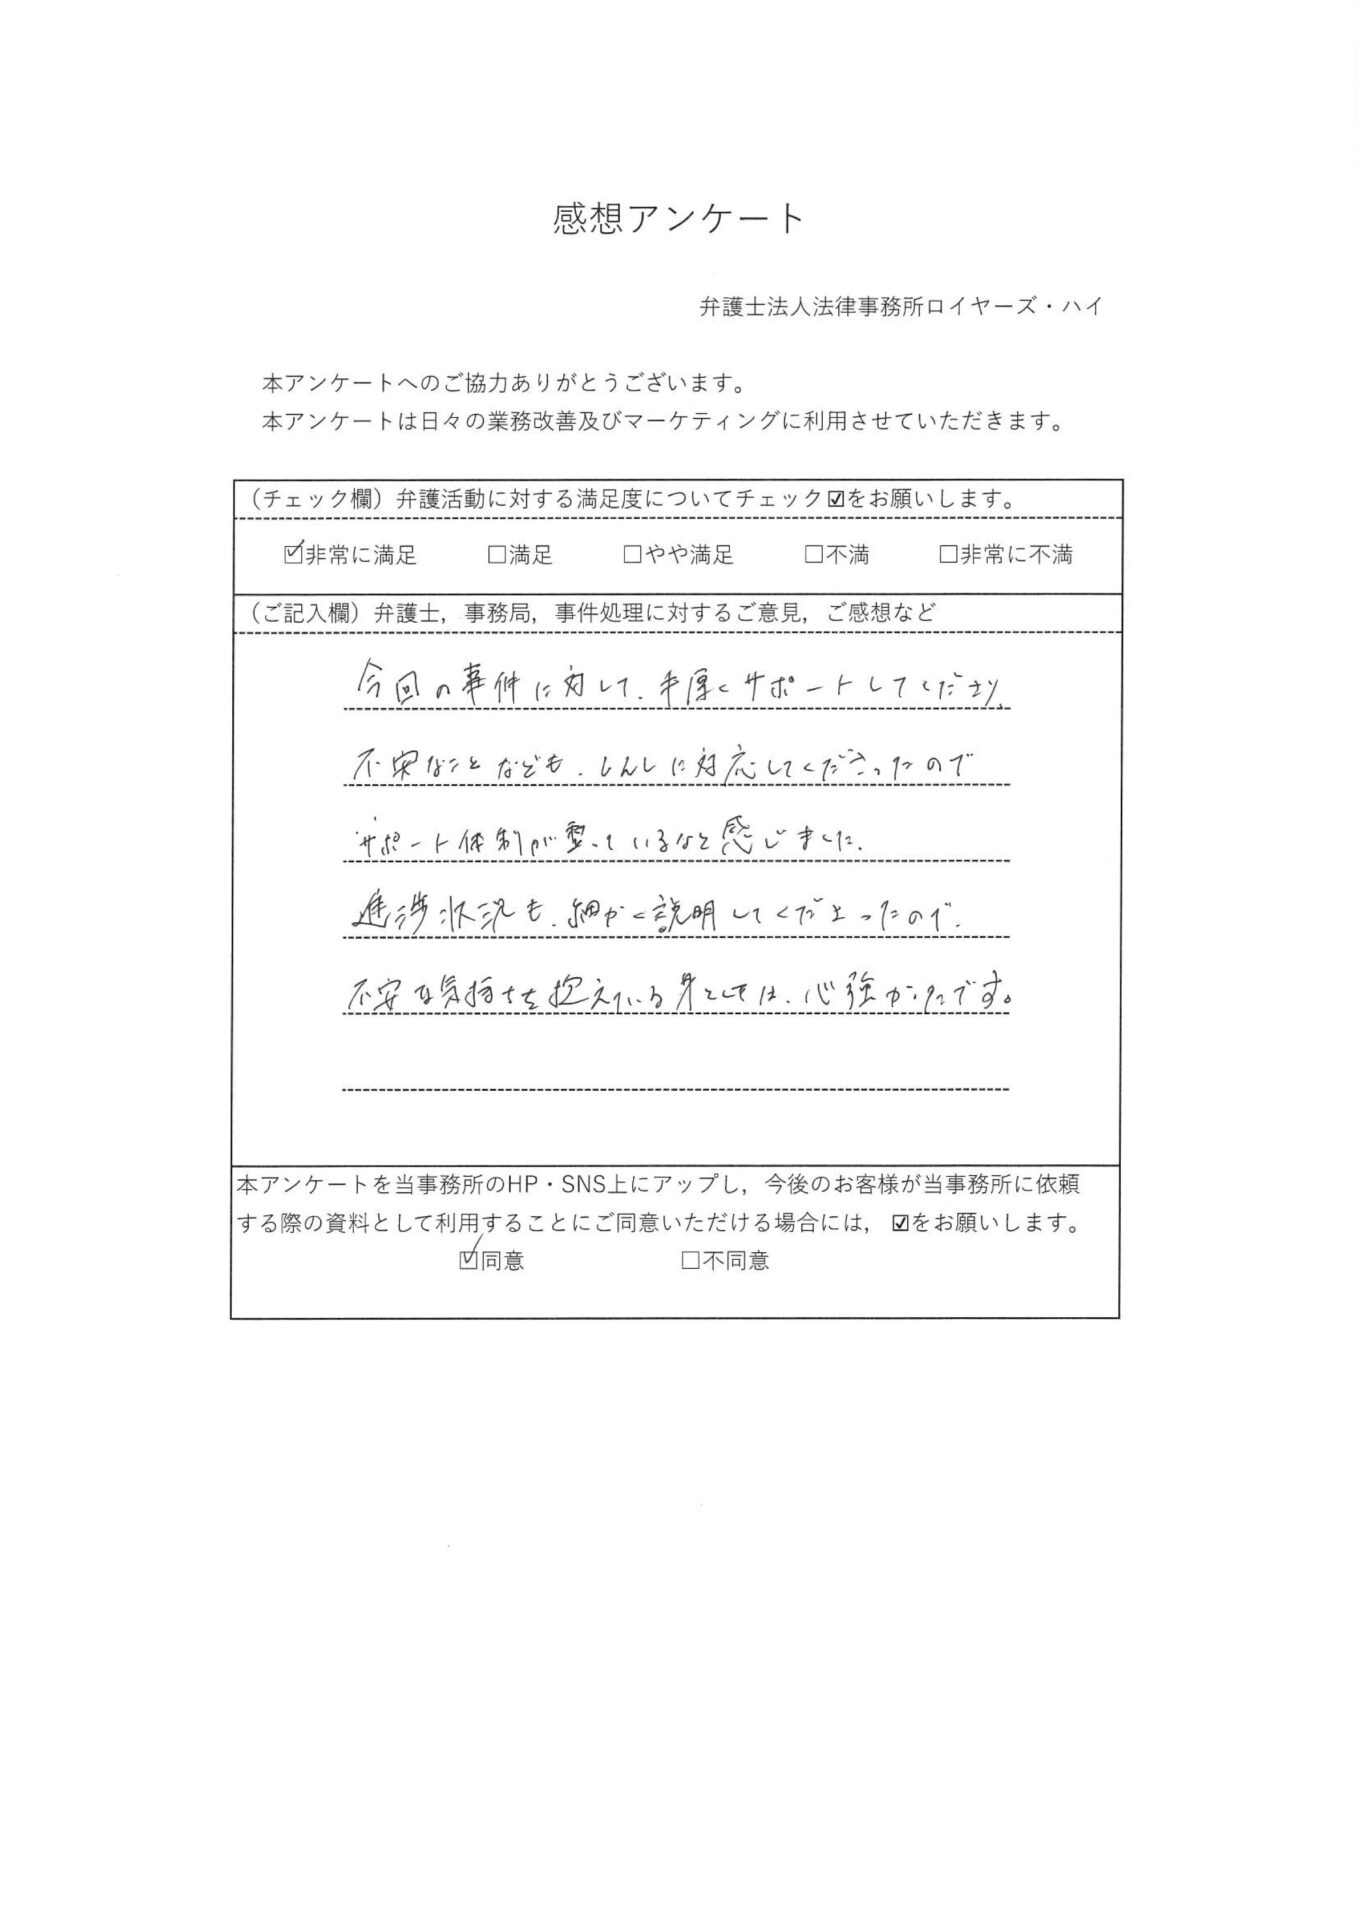 感想アンケート
弁護士法人法律事務所ロイヤーズ・ハイ
本アンケートへのご協力ありがとうございます。
本アンケートは日々の業務改善及びマーケティングに利用させていただきます。
（チェック欄）弁護活動に対する満足度についてチェック☑をお願いします。
☑非常に満足 □満足 □やや満足 □不満 □非常に不満
（ご記入欄）弁護士，事務局，事件処理に対するご意見，ご感想など
今回の事件に対して、手厚くサポートしてくださり、
不安なことなども、しんしに対応してくださったので
サポート体制が整っているなと感じました。
進渉状況も、細かく説明してくださったので、
不安な気持ちを抱えている身としては、心強かったです。
本アンケートを当事務所のHP・SNS上にアップし，今後のお客様が当事務所に依頼
する際の資料として利用することにご同意いただける場合には，☑をお願いします。
☑同意 □不同意